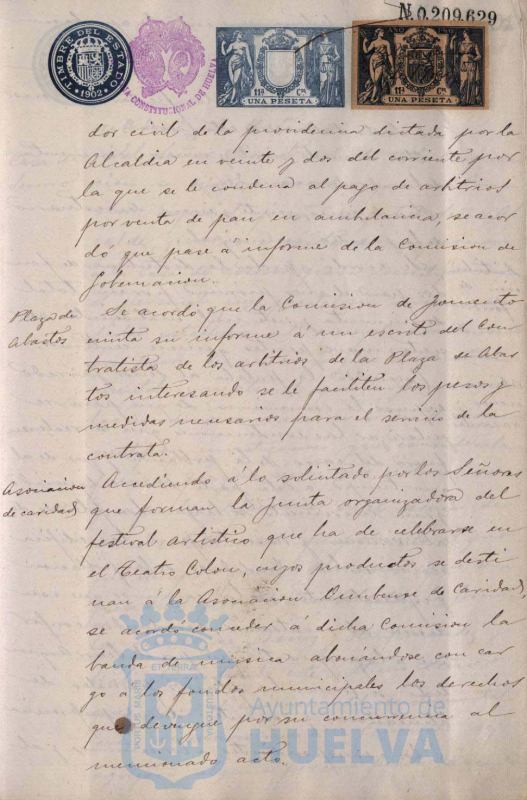 Nº 0.209.629
TIMBRE DEL ESTADO
1902
CONSTITUCIONAL DE HUELVA
11ª Cª
UNA PESETA
11ª Cª
UNA PESETA
dor civil de la providencia dictada por la
Alcaldia en veinte y dos del corriente por
la que se le condena al pago de arbitrios
por venta de pan en ambulancia, se acor
dó que pase á informe de la Comision de
Gobernacion.
Plaza de
Abastos
Se acordó que la Comision de Fomento
emita su informe á un escrito del Con
tratista de los arbitrios de la Plaza de Abas
tos interesando se le faciliten los pesos y
medidas necesarios para el servicio de la
contrata.
Asociacion
de caridad
Accediendo á lo solicitado por los Señores
que forman la Junta organizadora del
festival artistico que ha de celebrarse en
el Teatro Colon, cuyos productos se desti
nan á la Asociacion Onubense de Caridad,
se acordó conceder á dicha Comision la
banda de música abonándose con car
go a los fondos municipales los derechos
que devengue por su concurrencia al
mencionado acto.
PORTUS MARIS
ET TERRÆ
Ayuntamiento de
HUELVA